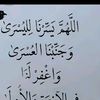 اللَّهُمَّ يَسِّرْنَا لِلْيُسْرَى
وَجَنِّبْنَا الْعُسْرَى
وَاغْفِرْ لَنَا